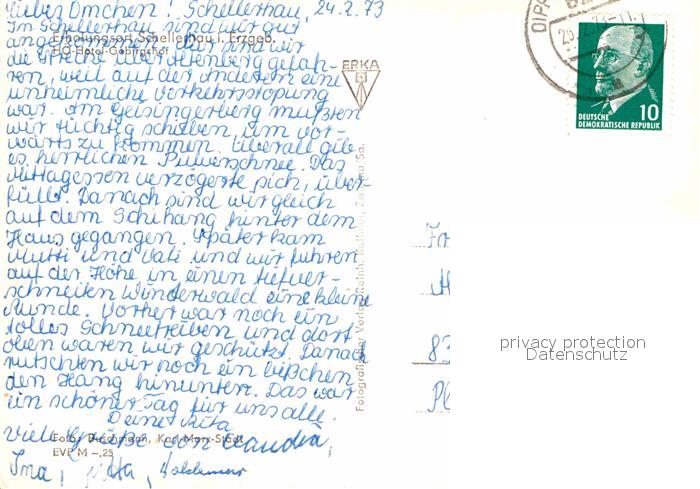 Liebes Omchen! Schellerhau, 24.2.73
In Schellerhau sind wir gut
angekommen. Nur sind wir
Erholungsort Schellerhau i. Erzgeb.
HO-Hotel Gebirgshof
die Strecke über Altenberg gefah-
ren, weil auf der anderen eine
unheimliche Verkehrsstopung
war. Am Geisingerberg mußten
wir tüchtig schieben, um vor-
wärts zu kommen. Überall gibt
es herrlichen Pulverschnee. Das
Mittagessen verzögerte sich, über-
füllt. Danach sind wir gleich
auf dem Schihang hinter dem
Haus gegangen. Später kam
Mutti und Vati und wir fuhren
auf der Höhe in einen tiefver-
schneiten Winderwald eine kleine
Runde. Vorher war noch ein
tolles Schneetreiben und dort
oben waren wir geschützt. Danach
rutschten wir noch ein bißchen
den Hang hinunter. Das war
ein schöner Tag für uns alle.
Deine
Viele Grüße von Claudia,
Foto: Karl-Marx-Stadt
EVP M -,25
Ina, Jutta, Waldemar
ERKA
Fotografischer Verlag
DIPP
10
DEUTSCHE
DEMOKRATISCHE REPUBLIK
Fr
H
83
Pl
privacy protection
Datenschutz